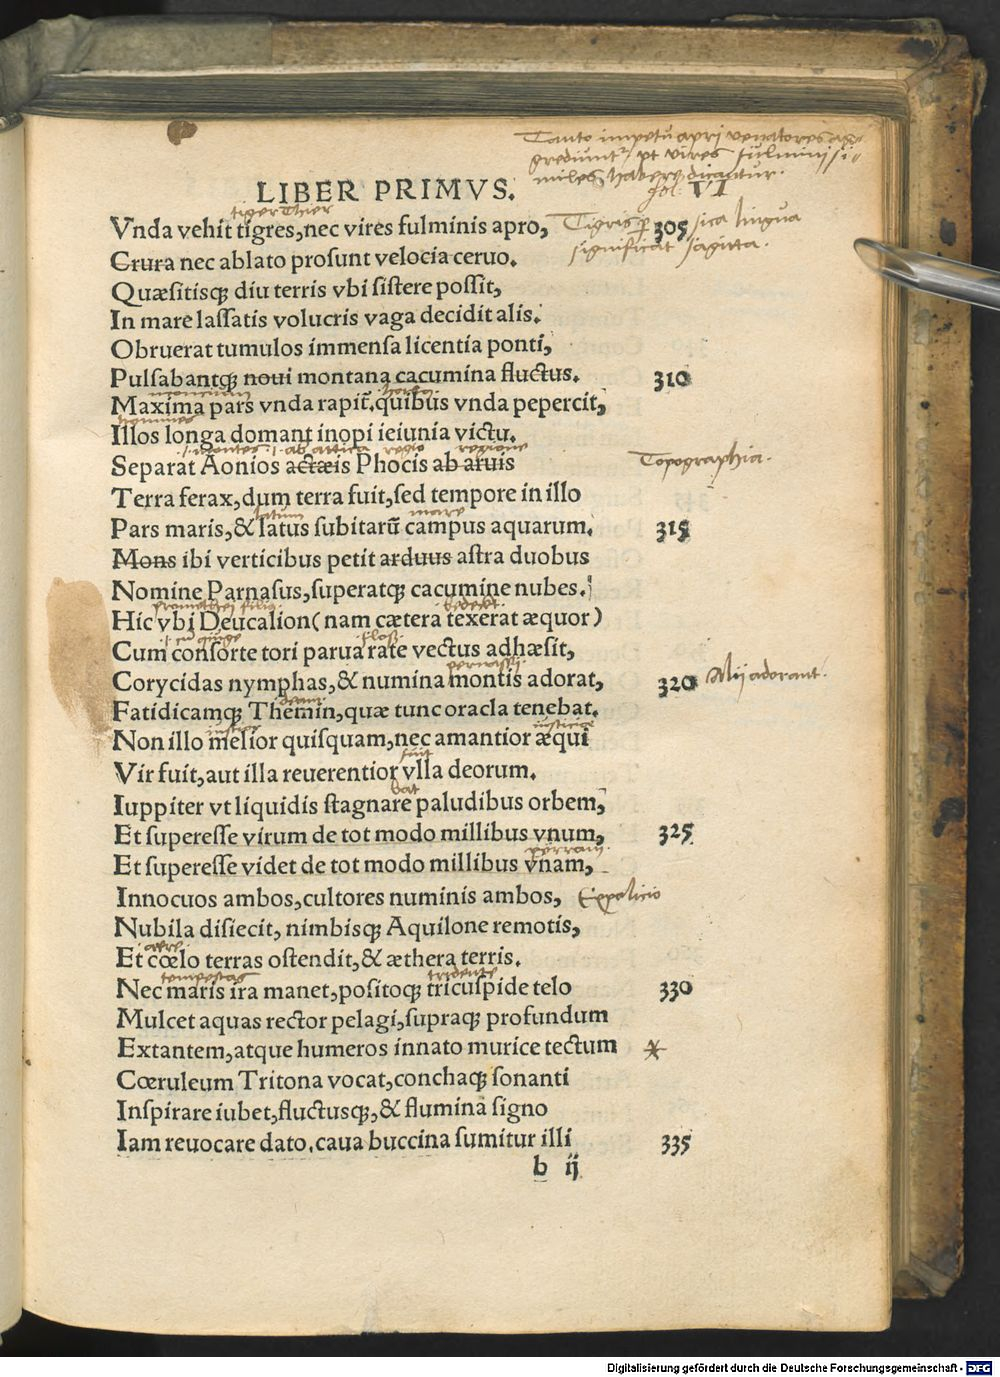 Tanto impetu apri venatores ag-
grediunt pt vires fulmini si-
miles habere dicantur.
LIBER PRIMVS.
fol: VI
tiger Thier
Vnda vehit tigres, nec vires fulminis apro,
305
Tigris p sica lingua
significat sagitta.
Crura nec ablato profunt velocia ceruo.
Quæsitisq; diu terris vbi sistere possit,
In mare lassatis volucris vaga decidit alis.
Obruerat tumulos immensa licentia ponti,
Pulsabantq; noui montana cacumina fluctus. 310
Maxima pars vnda rapit̃. quibus vnda pepercit,
homines
Illos longa domant inopi ieiunia victu.
.i. montes .i. ab attica regio regione
Separat Aonios actæis Phocis ab aruis
Topographia.
Terra ferax, dum terra fuit, sed tempore in illo
latum mare
Pars maris, & latus subitarũ campus aquarum. 315
Mons ibi verticibus petit arduus astra duobus
Nomine Parnasus, superatq; cacumine nubes.
promethei filius. bedeckt.
Hic vbi Deucalion (nam cætera texerat æquor)
.i. cũ coniuge floß.
Cum consorte tori parua rate vectus adhæsit,
Corycidas nymphas, & numina montis adorat, 320
Alij adorant.
Fatidicamq; Themin, quæ tunc oracla tenebat.
iusticiæ
Non illo melior quisquam, nec amantior æqui
fuit
Vir fuit, aut illa reuerentior vlla deorum.
bat
Iuppiter vt liquidis stagnare paludibus orbem,
Et superesse virum de tot modo millibus vnum, 325
pirram.
Et superesse videt de tot modo millibus vnam,
Innocuos ambos, cultores numinis ambos,
Expolicio
Nubila disiecit, nimbisq; Aquilone remotis,
aere
Et cœlo terras ostendit, & æthera terris.
tempestas tridente
Nec maris ira manet, positoq; tricuspide telo 330
Mulcet aquas rector pelagi, supraq; profundum
Extantem, atque humeros innato murice tectum *
Cœruleum Tritona vocat, conchaq; sonanti
Inspirare iubet, fluctusq;, & flumina signo
Iam reuocare dato. caua buccina sumitur illi 335
b ij
Digitalisierung gefördert durch die Deutsche Forschungsgemeinschaft - DFG